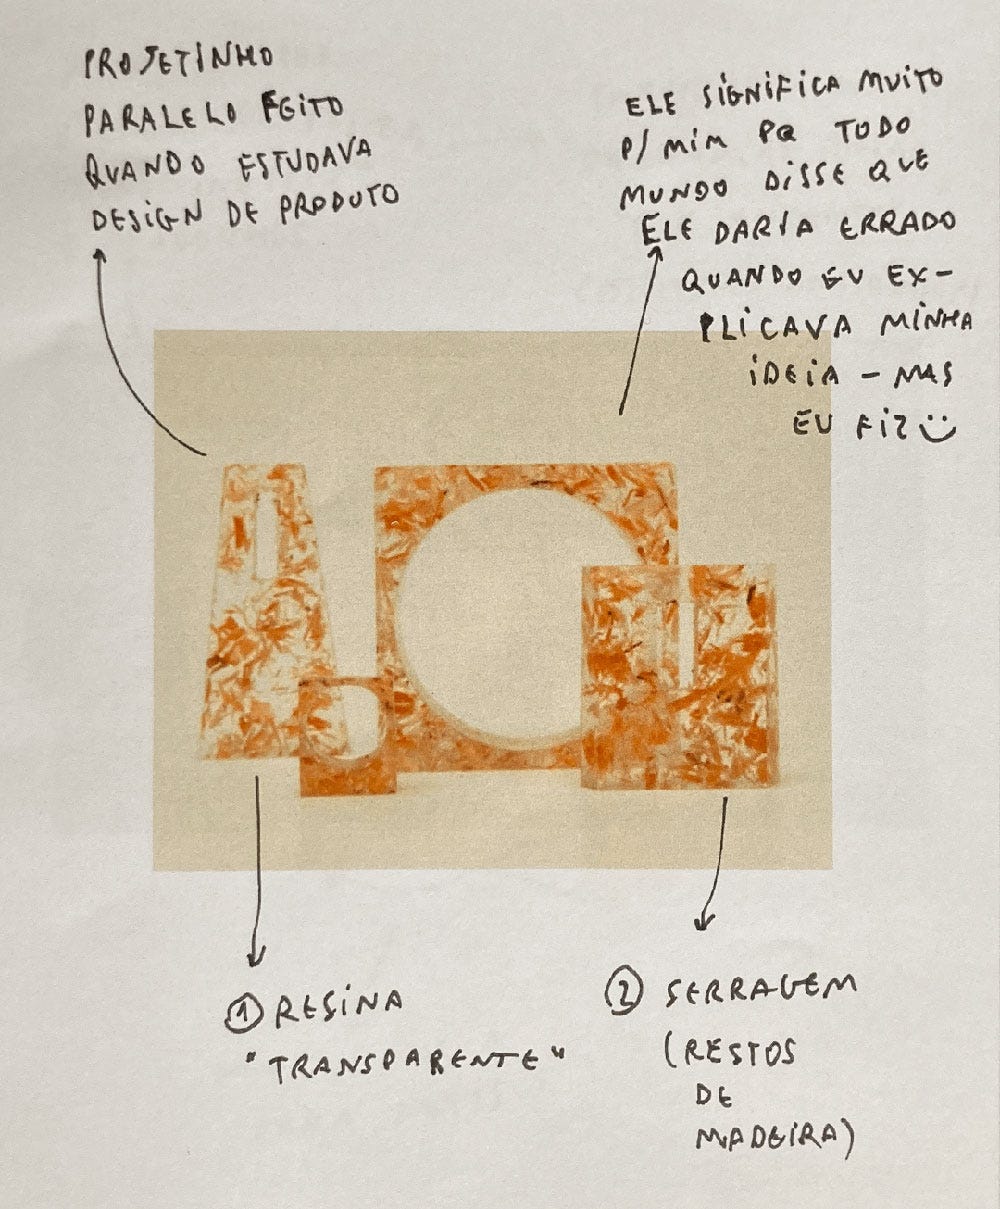 PROJETINHO
PARALELO FEITO
QUANDO ESTUDAVA
DESIGN DE PRODUTO
ELE SIGNIFICA MUITO
P/ MIM PQ TODO
MUNDO DISSE QUE
ELE DARIA ERRADO
QUANDO EU EX-
PLICAVA MINHA
IDEIA - MAS
EU FIZ :)
① RESINA
"TRANSPARENTE"
② SERRAGEM
(RESTOS
DE
MADEIRA)